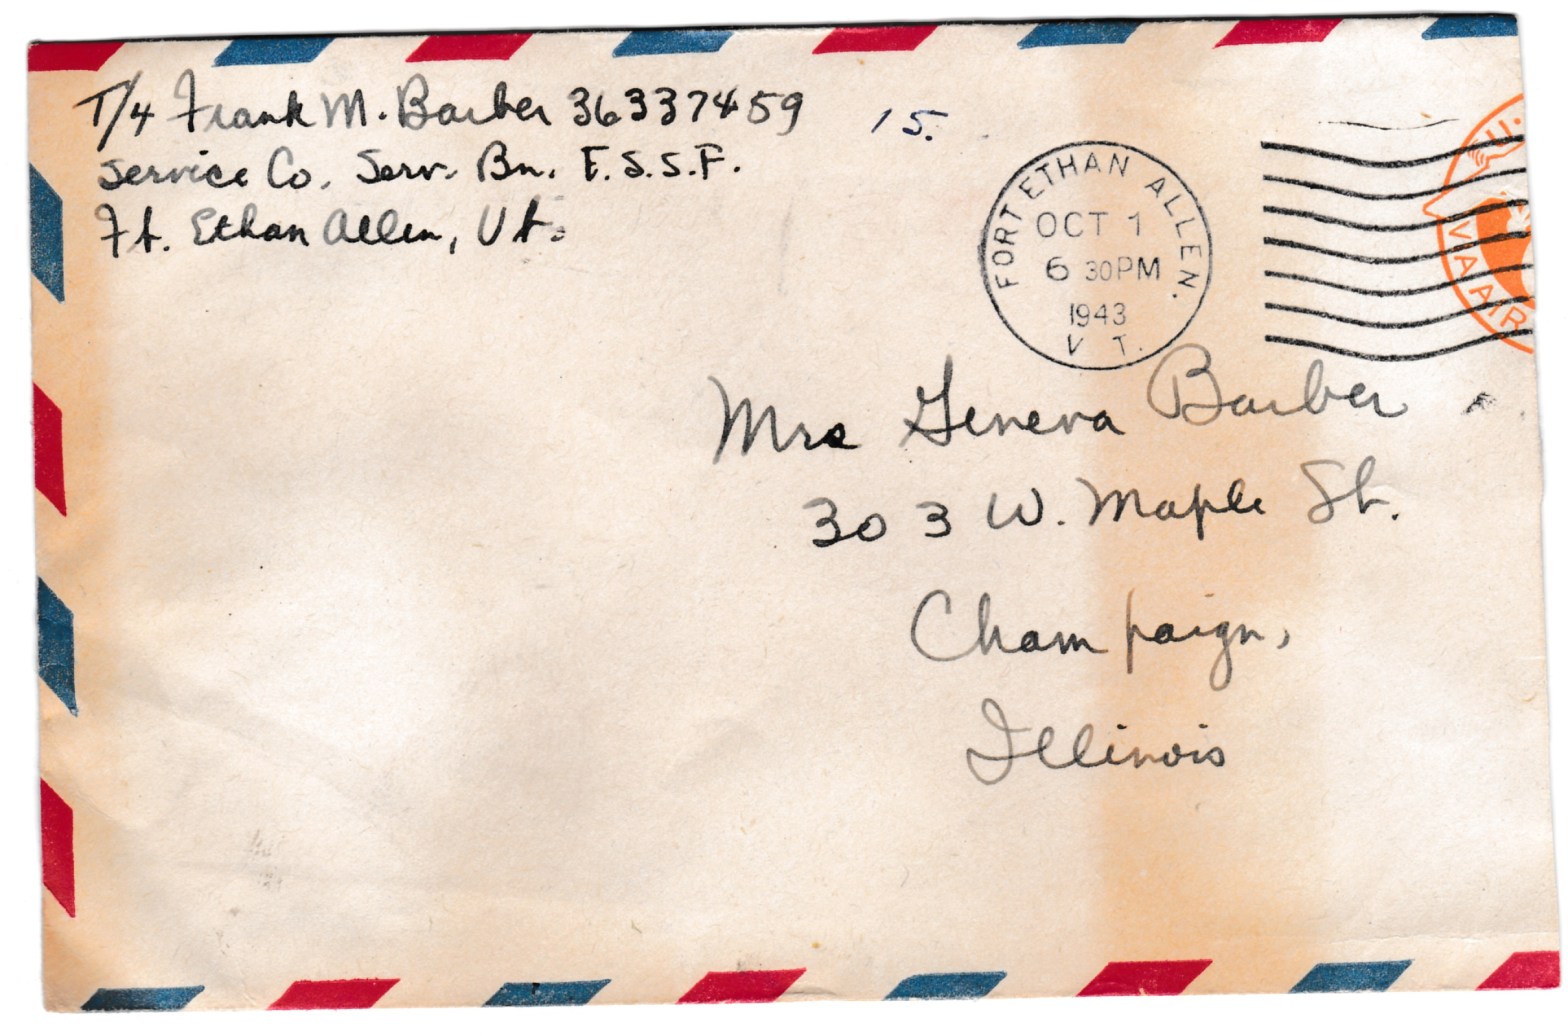 T/4 Frank M. Barber 36337459
15.
Service Co. Serv. Bn. F.S.S.F.
Ft. Ethan Allen, Vt.
FORT ETHAN ALLEN.
OCT 1
6 30PM
1943
VT.
U.
VIA AIR
Mrs Geneva Barber
303 W. Maple St.
Champaign,
Illinois